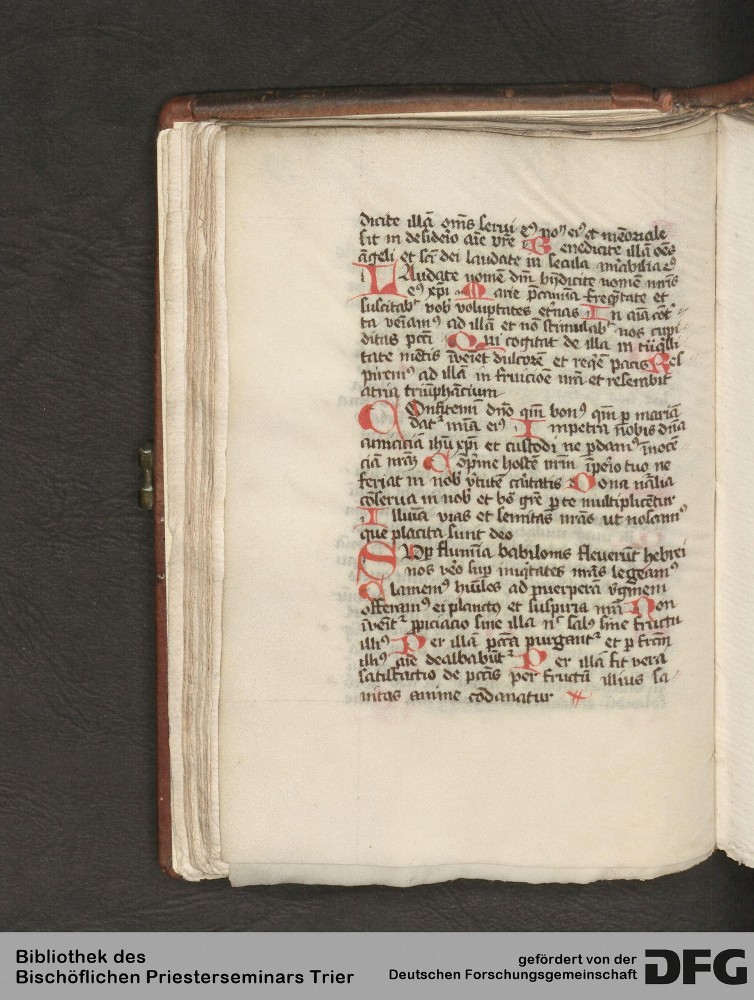 dicite illā om̄s serui eꝰ noⁿ eiꝰ et mēoriale
sit in desideīo aīe vr̄e Benedicite illā oēs
āgeli et sc̄i dei laudate in secula mīabilia eꝰ
Laudate nomē dn̄i bn̄dicite nomē mr̄is
eꝰ xp̄i Marie p̄camīa freq̄tate et
suscitabᵗ vob̄ voluptates et̄nas In
ta veiamꝰ ad illā et nō stimulabᵗ nos cupi
ditas pcc̄i Qui cogitat de illa in
tate mētis īveiet dulcorē et reqē pacis Res
piremꝰ ad illā in fruicioē nr̄ā et reserabit
atria triūphācium
Confitemī dn̄o qm̄ bonꝰ qm̄ p mariā
datᵗ mīa eiꝰ Impetra nobis dn̄a
amiciciā ihū xp̄i et custodi ne pdamꝰ īnocē
ciā nr̄aȝ Cōp̄me hostē nr̄m īpeīo tuo ne
feriat in nob̄ v̓tutē cātatis Dona
cōserua in nob̄ et bō grē p te multiplicētur
Illuīa vias et semitas nr̄as ut noscamꝰ
que placita sunt deo
Sup flumīa babilonis fleuerūt hebrei
nos v̓o sup īniq̄tates nr̄as legeamꝰ
Clamemꝰ hūiles ad puerperā v̓gīnem
offeramꝰ ei planctꝰ et suspiria nr̄ā Non
īveitᵗ ppiciacio sine illa nᶜ salꝰ sine fructu
illiꝰ Per illā pcc̄a purgantᵗ et p frc̄m
illiꝰ aīe dealbabūtᵗ Per illā fit vera
satisfactio de pcc̄is per fructū illius sa
nitas anime cōdanatur
Bibliothek des
Bischöflichen Priesterseminars Trier
gefördert von der
Deutschen Forschungsgemeinschaft
DFG